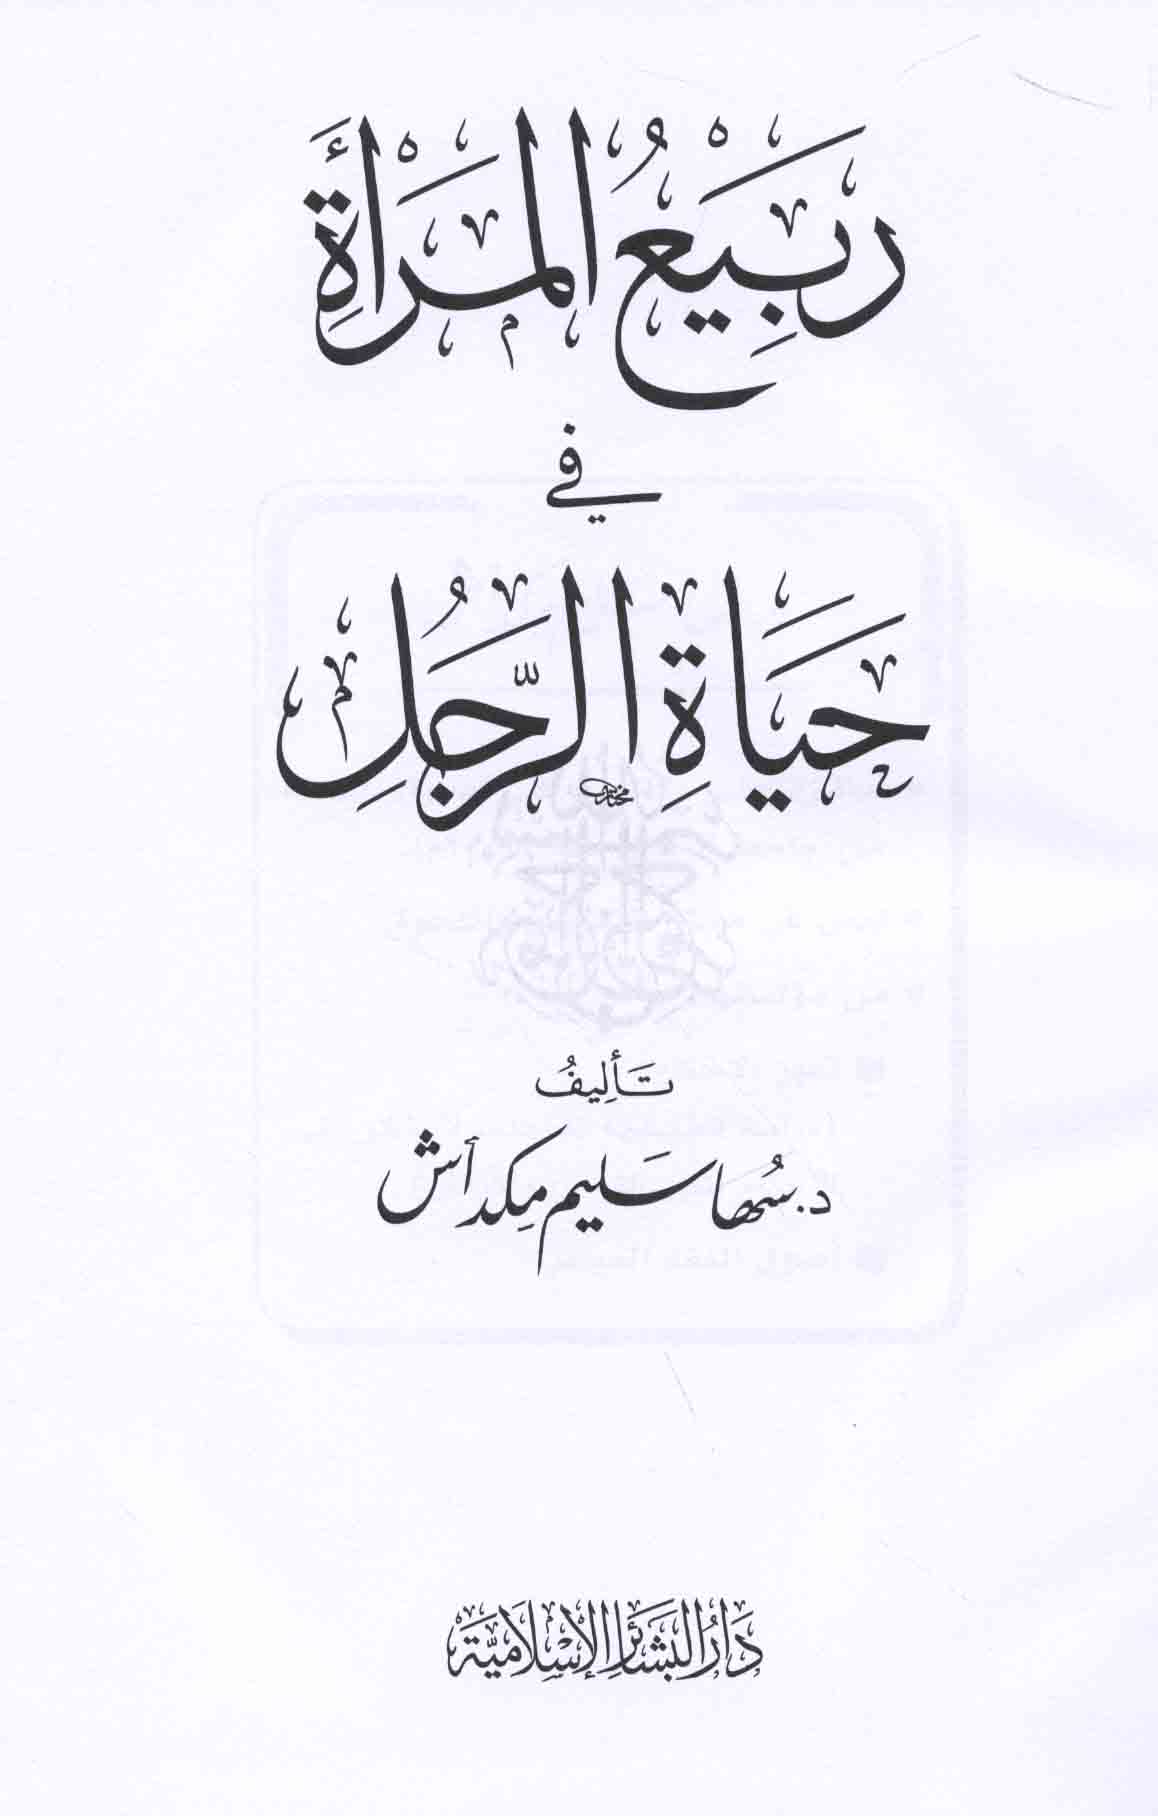 رَبِيْعُ المَرْأَةِ
في
حَيَاةِ الرَّجُلِ
تَأليفُ
د. سُها سَليم مِكداش
دَارُ البَشَائِرِ الإِسْلَامِيَّة